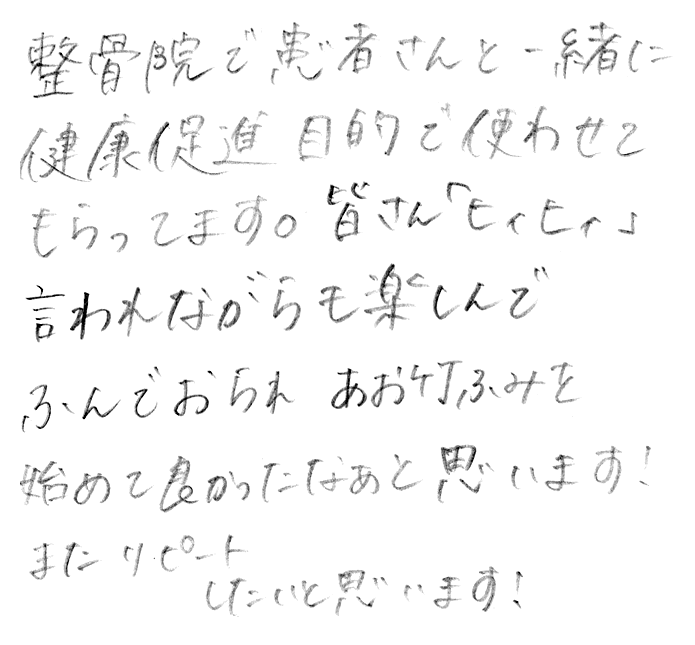 整骨院で患者さんと一緒に
健康促進目的で使わせて
もらってます。皆さん「ヒィヒィ」
言われながらも楽しんで
ふんでおられ あお竹ふみを
始めて良かったなぁと思います!
またリピート
したいと思います!